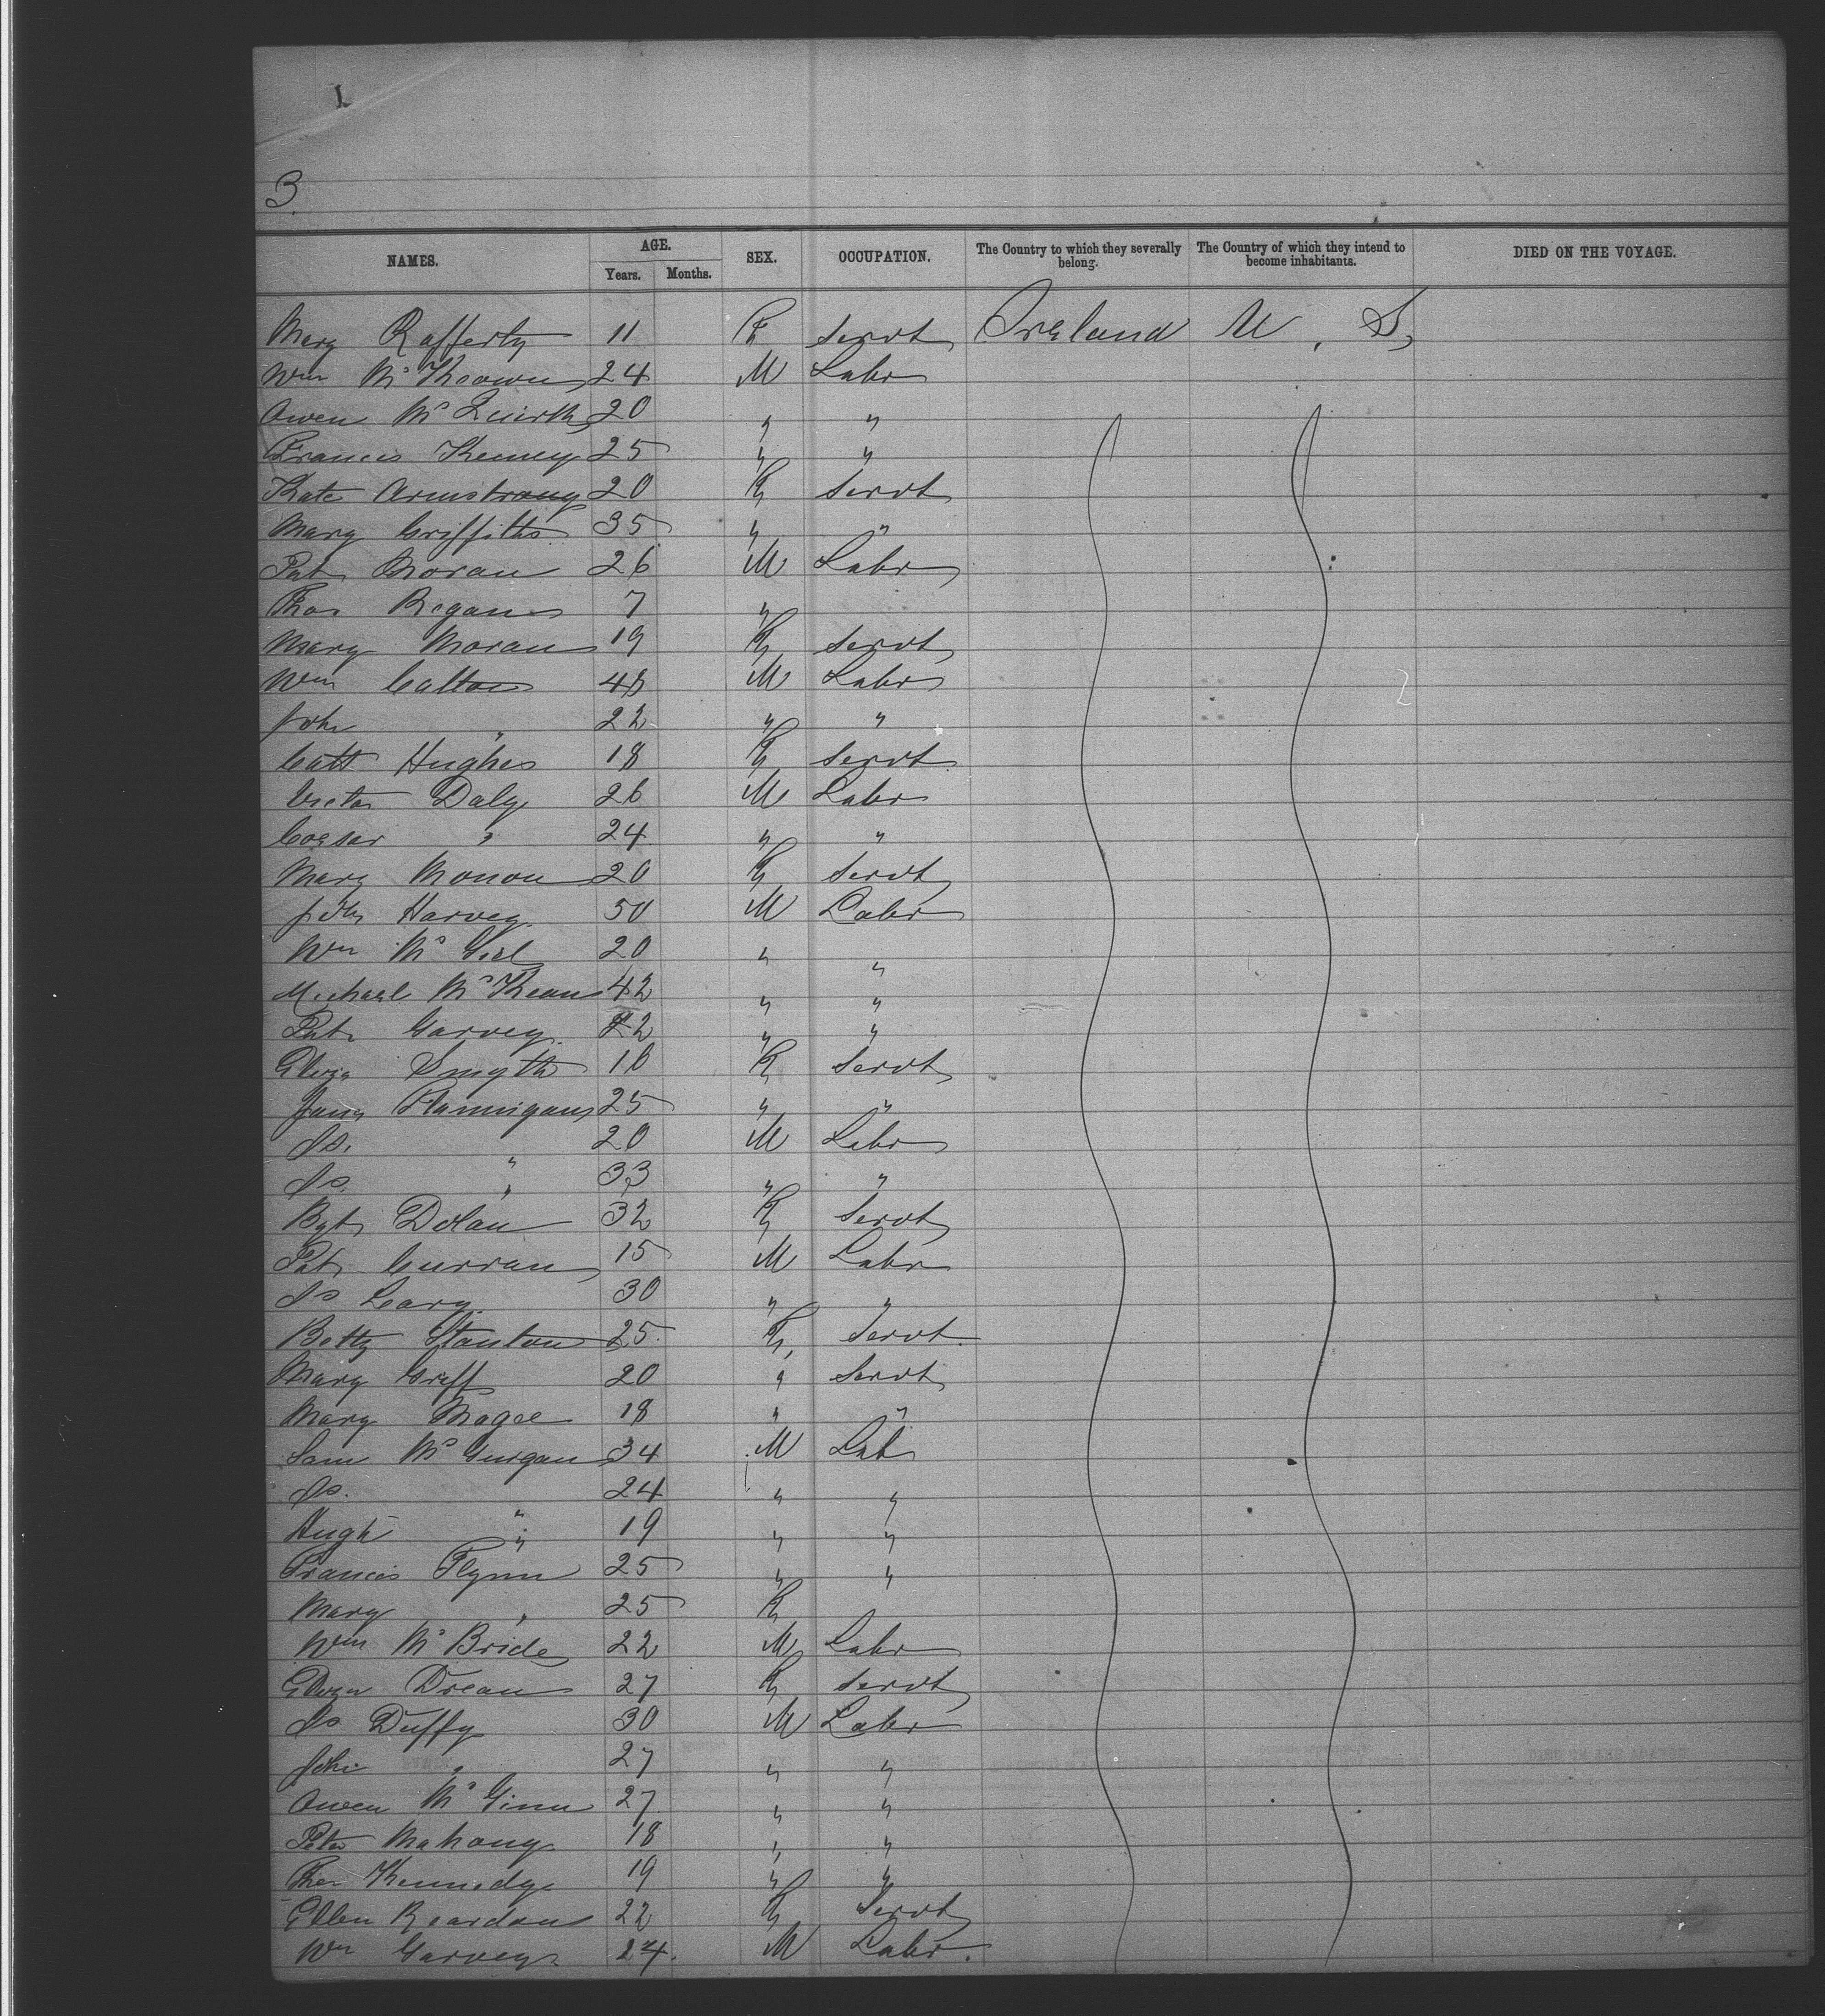 1
3
NAMES. AGE. Years. Months. SEX. OCCUPATION. The Country to which they severally belong. The Country of which they intend to become inhabitants. DIED ON THE VOYAGE.
Mary Rafferty 11 F Servt Ireland U. S,
Wm McKeown 24 M Labr
Owen Mc 20 " "
Francis Kenney 25 " "
Kate Armstrong 20 F Servt
Mary Griffiths 35 " "
Pat Moran 26 M Labr
Thos Regan 7 "
Mary Moran 19 F Servt
Wm Calton 46 M Labr
John " 22 " "
Cath Hughes 18 F Servt
Victor Daly 26 M Labr
Coesar " 24 " "
Mary Monon 20 F Servt
John Harvey 50 M Labr
Wm Mc 20 " "
Michael McKean 42 " "
Pat Garvey 22 " "
Eliza Smyth 16 F Servt
Jane Flannigan 25 " "
Js. " 20 M Labr
Js. " 33 " "
Bgt Dolan 32 F Servt
Pat Curran 15 M Labr
Js Leary 30 " "
Betty Stanton 25 F Servt
Mary Griff 20 " Servt
Mary Magee 18 " "
Sam McGurgan 34 M Lab
Js. " 24 " "
Hugh " 19 " "
Francis Flynn 25 " "
Mary " 25 F
Wm McBride 22 M Labr
Eliza Drean 27 F Servt
Js Duffy 30 M Labr
John " 27 " "
Owen McGinn 27 " "
Peter Mahony 18 " "
Thos Kennedy 19 " "
Ellen Reardon 22 F Servt
Wm Garvey 24. M Labr.